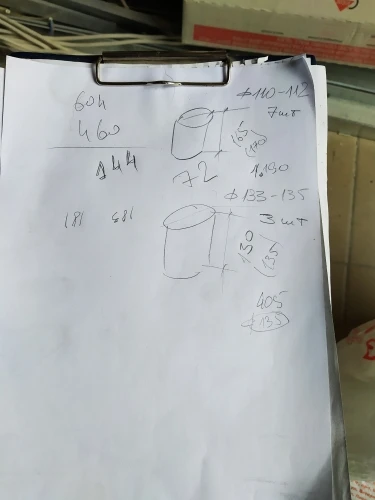 604
460
144
181 183
ϕ110-112
7 шт
165
(170)
72
1.190
ϕ133-135
3 шт
130
(135)
405
ϕ135